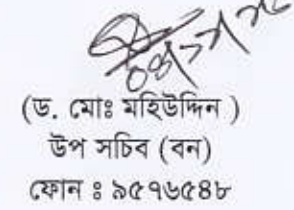 (ড. মোঃ মহিউদ্দিন )
উপ সচিব (বন)
ফোন ঃ ৯৫৭৬৫৪৮